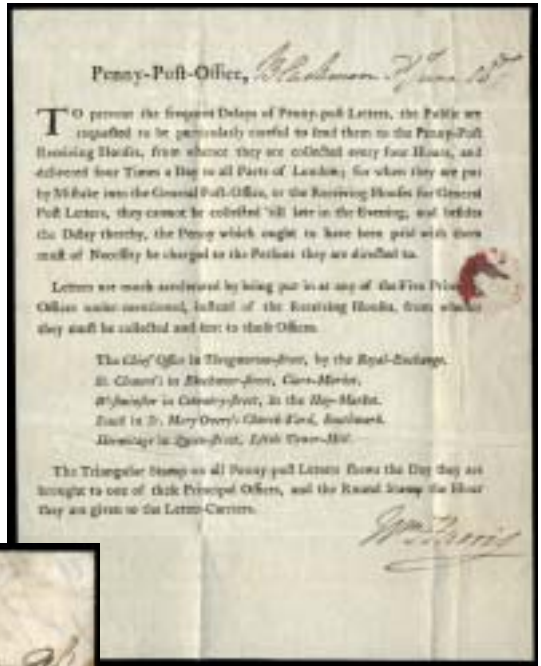 Penny-Poſt-Office,
TO prevent the frequent Delays of Penny-poſt Letters, the Public are
requeſted to be particularly careful to ſend them to the Penny-Poſt
Receiving Houſes, from whence they are collected every four Hours, and
delivered four Times a Day to all Parts of London; for when they are put
by Miſtake into the General Poſt-Office, or the Receiving Houſes for General
Poſt Letters, they cannot be collected 'till late in the Evening, and beſides
the Delay thereby, the Penny which ought to have been paid with them
muſt of Neceſſity be charged to the Perſons they are directed to.
Letters are much accelerated by being put in at any of the Five
Offices under-mentioned, inſtead of the Receiving Houſes, from
they muſt be collected and ſent to theſe Offices.
The Chief Office in Throgmorton-ſtreet, by the Royal-Exchange.
St. Clement's in Blackmoor-ſtreet, Clare-Market.
Weſtminſter in Coventry-ſtreet, in the Hay-Market.
in St. Mary Overy's Church-Yard, Southwark.
Hermitage in Queen-ſtreet, Little Tower-Hill.
The Triangular Stamp on all Penny-poſt Letters ſhews the Day they are
brought to one of theſe Principal Offices, and the Round Stamp the Hour
they are given to the Letter-Carriers.